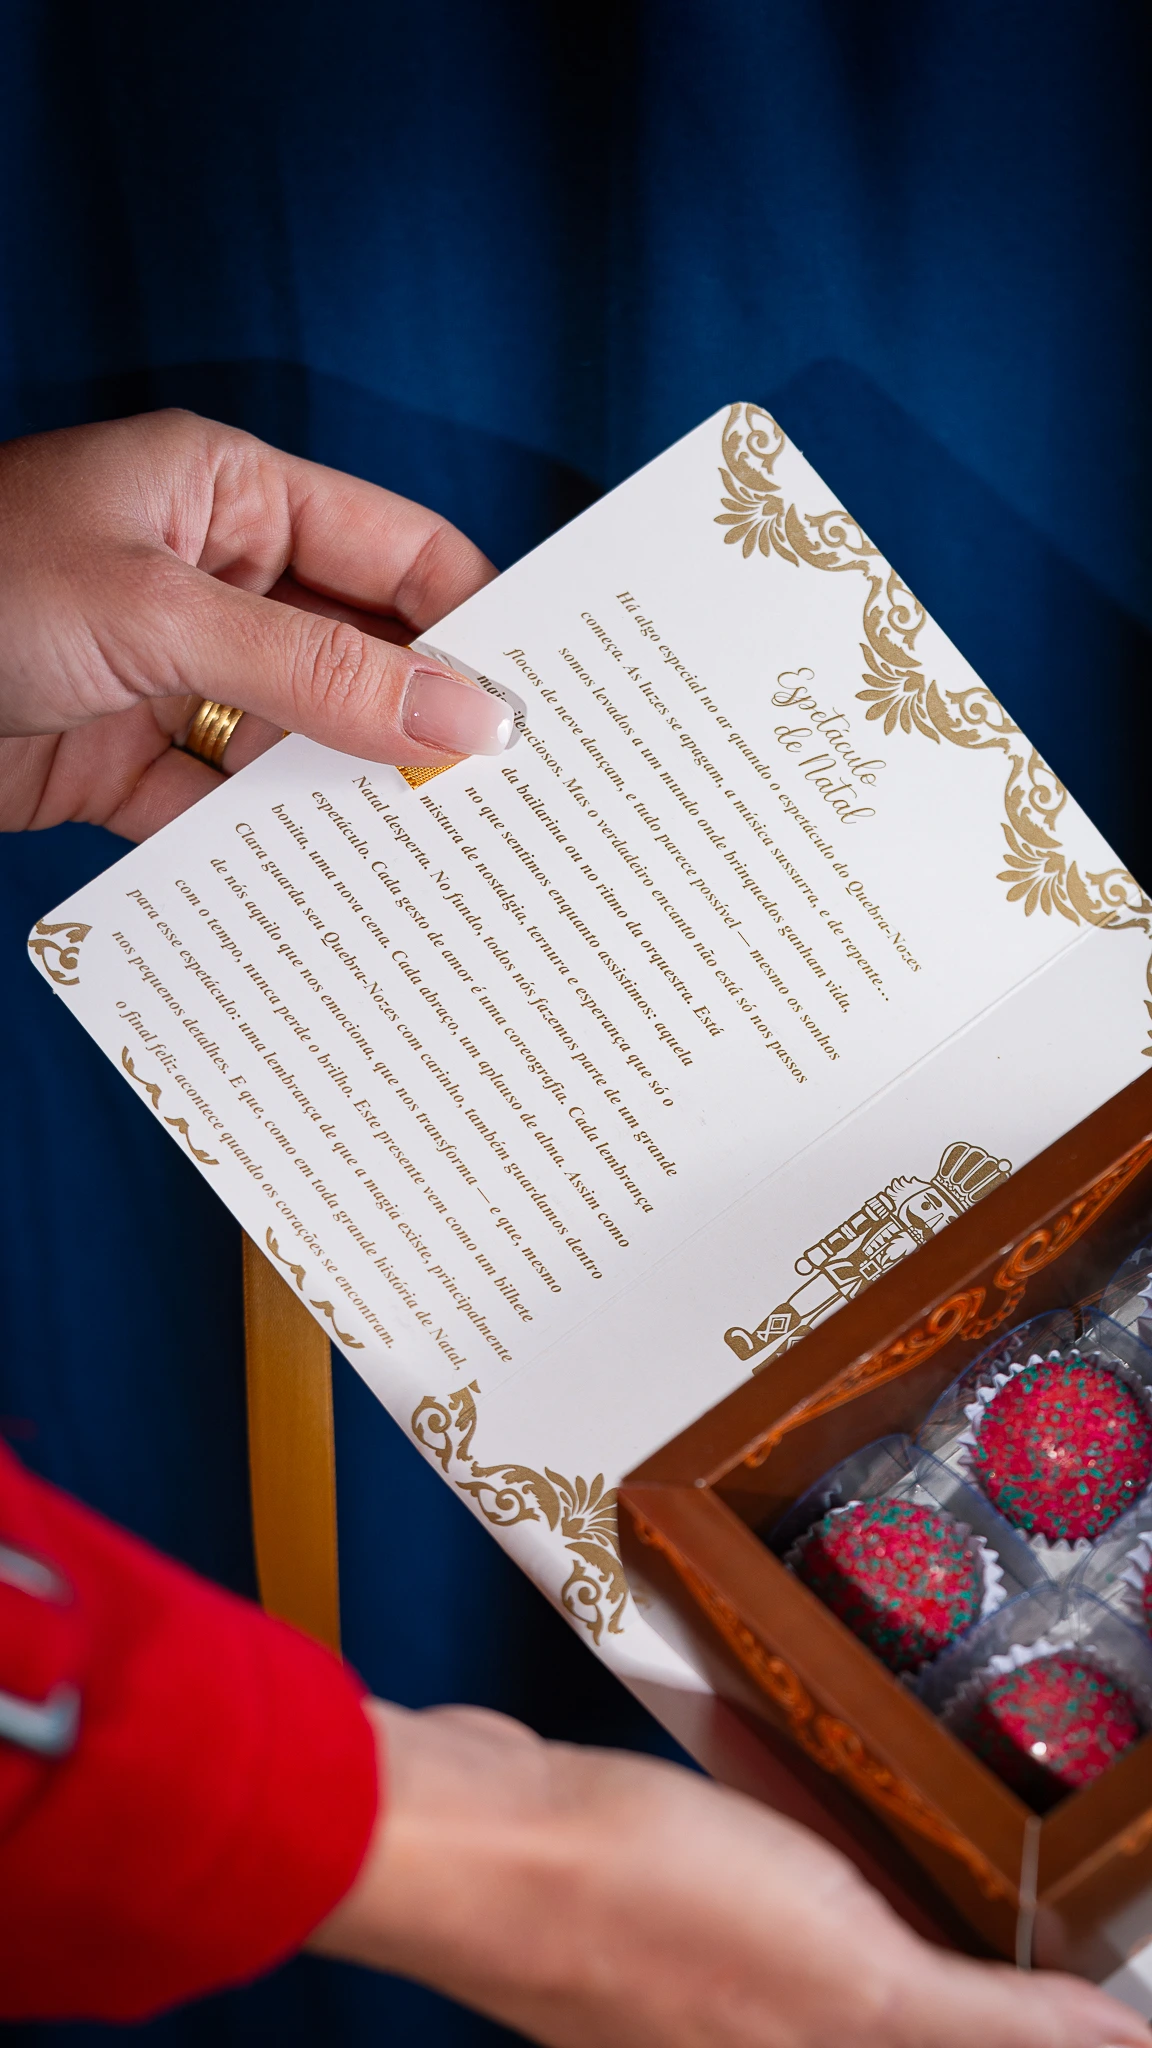 Espetáculo
de Natal
Há algo especial no ar quando o espetáculo do Quebra-Nozes
começa. As luzes se apagam, a música sussurra, e de repente...
somos levados a um mundo onde brinquedos ganham vida,
flocos de neve dançam, e tudo parece possível — mesmo os sonhos
mais silenciosos. Mas o verdadeiro encanto não está só nos passos
da bailarina ou no ritmo da orquestra. Está
no que sentimos enquanto assistimos: aquela
mistura de nostalgia, ternura e esperança que só o
Natal desperta. No fundo, todos nós fazemos parte de um grande
espetáculo. Cada gesto de amor é uma coreografia. Cada lembrança
bonita, uma nova cena. Cada abraço, um aplauso de alma. Assim como
Clara guarda seu Quebra-Nozes com carinho, também guardamos dentro
de nós aquilo que nos emociona, que nos transforma — e que, mesmo
com o tempo, nunca perde o brilho. Este presente vem como um bilhete
para esse espetáculo: uma lembrança de que a magia existe, principalmente
nos pequenos detalhes. E que, como em toda grande história de Natal,
o final feliz acontece quando os corações se encontram.